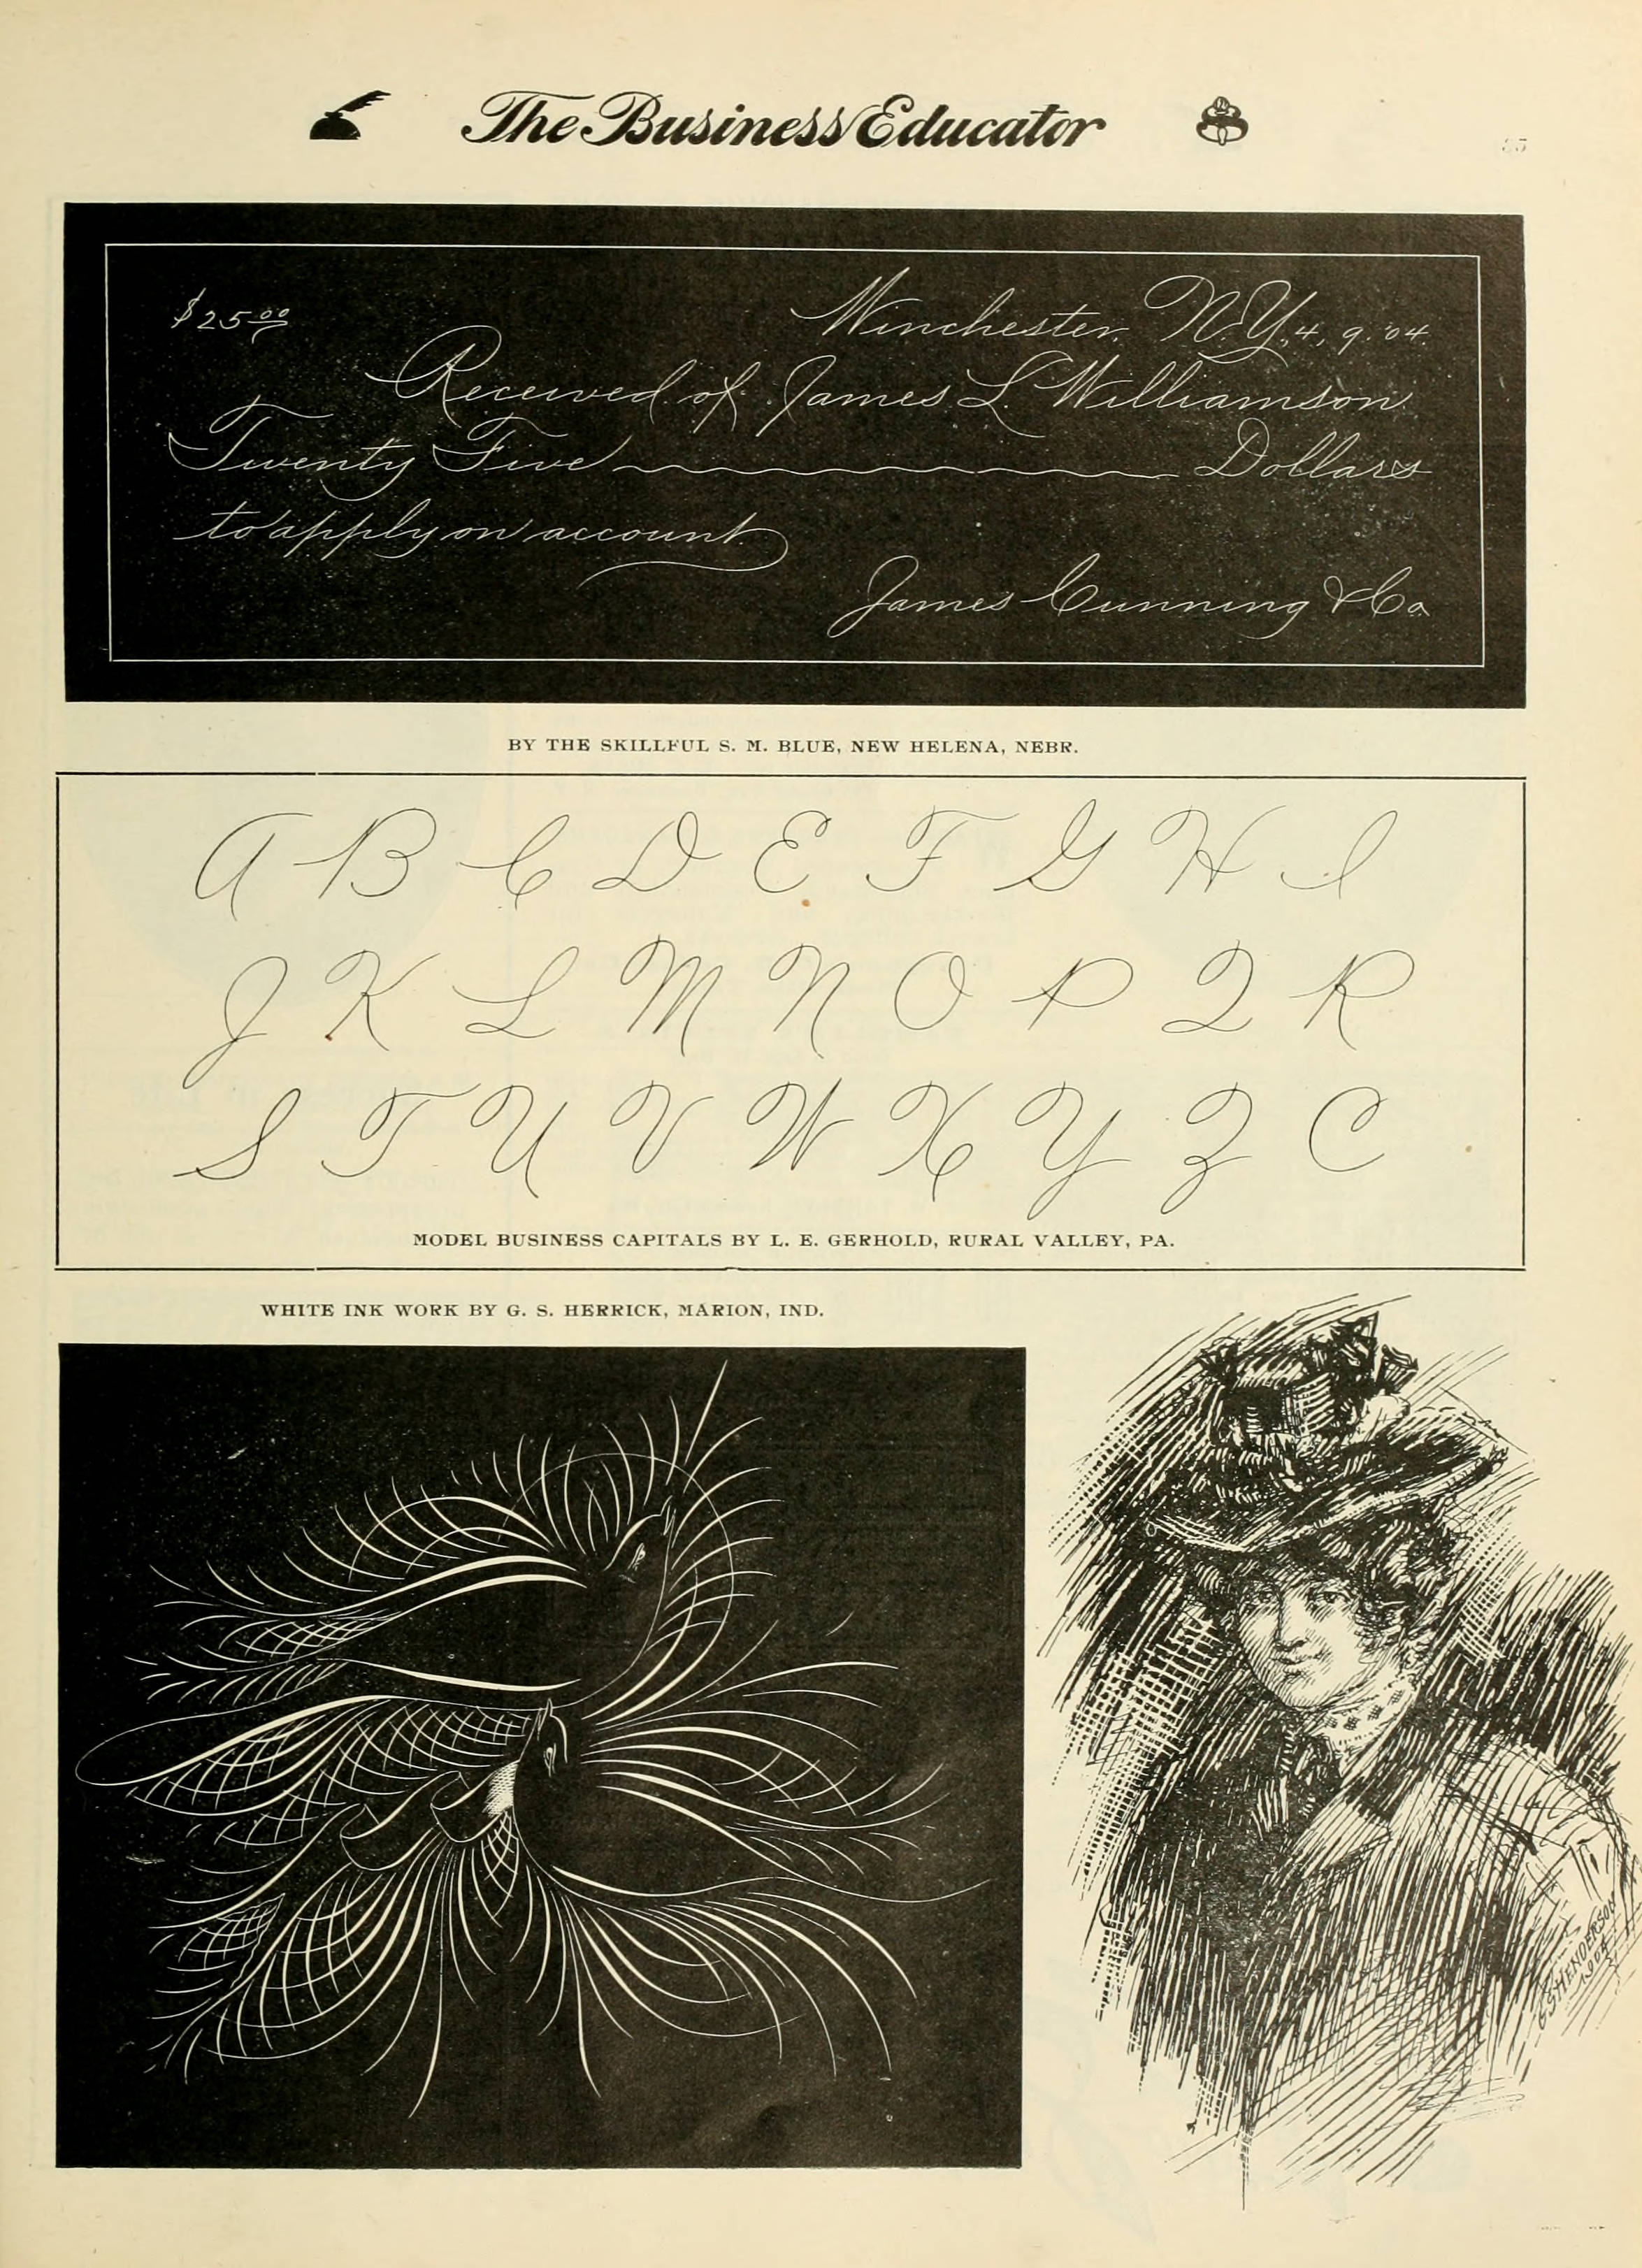 The Business Educator
$25 00
Winchester, N.Y., 4, 9, '04.
Received of James L. Williamson
Twenty Five Dollars
to apply on account
James Cunning & Co.
BY THE SKILLFUL S. M. BLUE, NEW HELENA, NEBR.
A B C D E F G H I
J K L M N O P Q R
S T U V W X Y Z C
MODEL BUSINESS CAPITALS BY L. E. GERHOLD, RURAL VALLEY, PA.
WHITE INK WORK BY G. S. HERRICK, MARION, IND.
HENDERSON